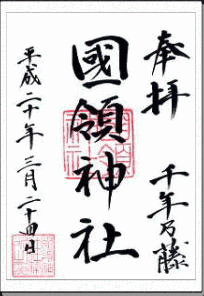 奉拝
千年乃藤
國領神社
平成二十年三月二十四日